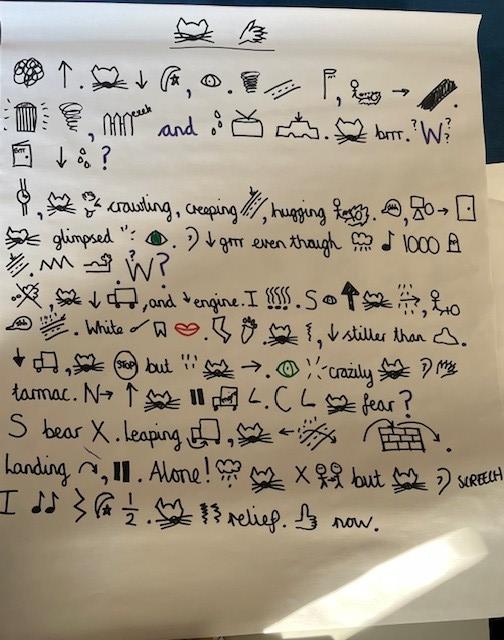 eeek and brrr. ?W?
?
, crawling, creeping , hugging .
glimpsed grrr even though 1000
. . ?W?
, , and engine. I . S ,
. White . , . , stiller than .
, STOP but . crazily
tarmac. N . C L fear?
S bear X. Leaping , .
Landing , . Alone! X but SCREECH
I ½. relief. now.